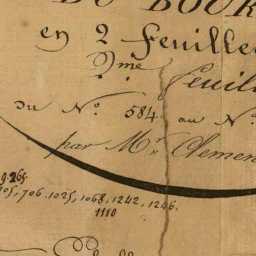 DU BOUR
en 2 feuille
2me feuil
du No. 584 au No.
par Mr. Clemen
9.265
705, 706. 1025, 1068, 1242, 1206.
1110